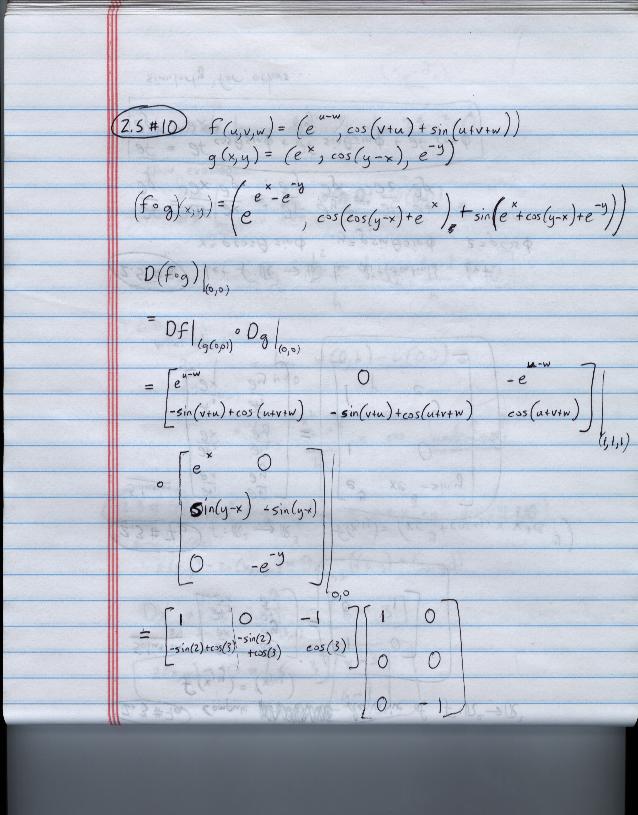 2.5 #10 f(u,v,w) = (e^{u-w}, cos(v+u) + sin(u+v+w))
g(x,y) = (e^x, cos(y-x), e^{-y})
(f∘g)(x,y) = (e^{e^x - e^{-y}}, cos(cos(y-x)+e^x) + sin(e^x+cos(y-x)+e^{-y}))
D(f∘g)|_(0,0)
= Df|_(g(0,0)) ∘ Dg|_(0,0)
= [e^{u-w} 0 -e^{u-w}
-sin(v+u)+cos(u+v+w) -sin(v+u)+cos(u+v+w) cos(u+v+w)]|_(1,1,1)
∘ [e^x 0
sin(y-x) -sin(y-x)
0 -e^{-y}]|_0,0
= [1 0 -1
-sin(2)+cos(3) -sin(2)+cos(3) cos(3)] [1 0
0 0
0 -1]